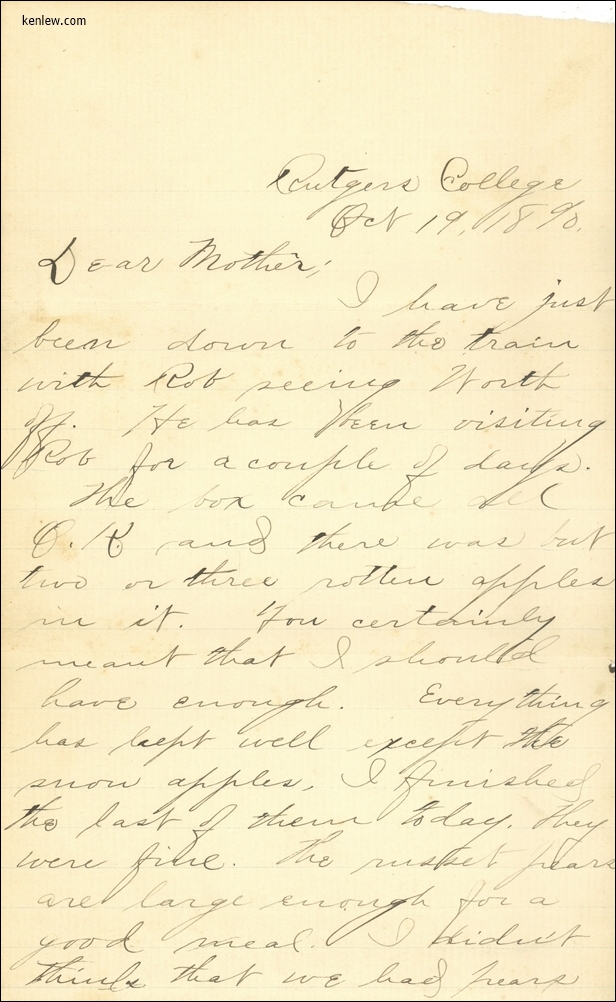 kenlew.com
Rutgers College
Oct 19, 1890.
Dear Mother;
I have just
been down to the train
with Rob seeing Worth
off. He has been visiting
Rob for a couple of days.
The box came all
O.K. and there was but
two or three rotten apples
in it. You certainly
meant that I should
have enough. Everything
has kept well except the
snow apples, I finished
the last of them today. They
were fine. The russet pears
are large enough for a
good meal. I didn't
think that we had pears